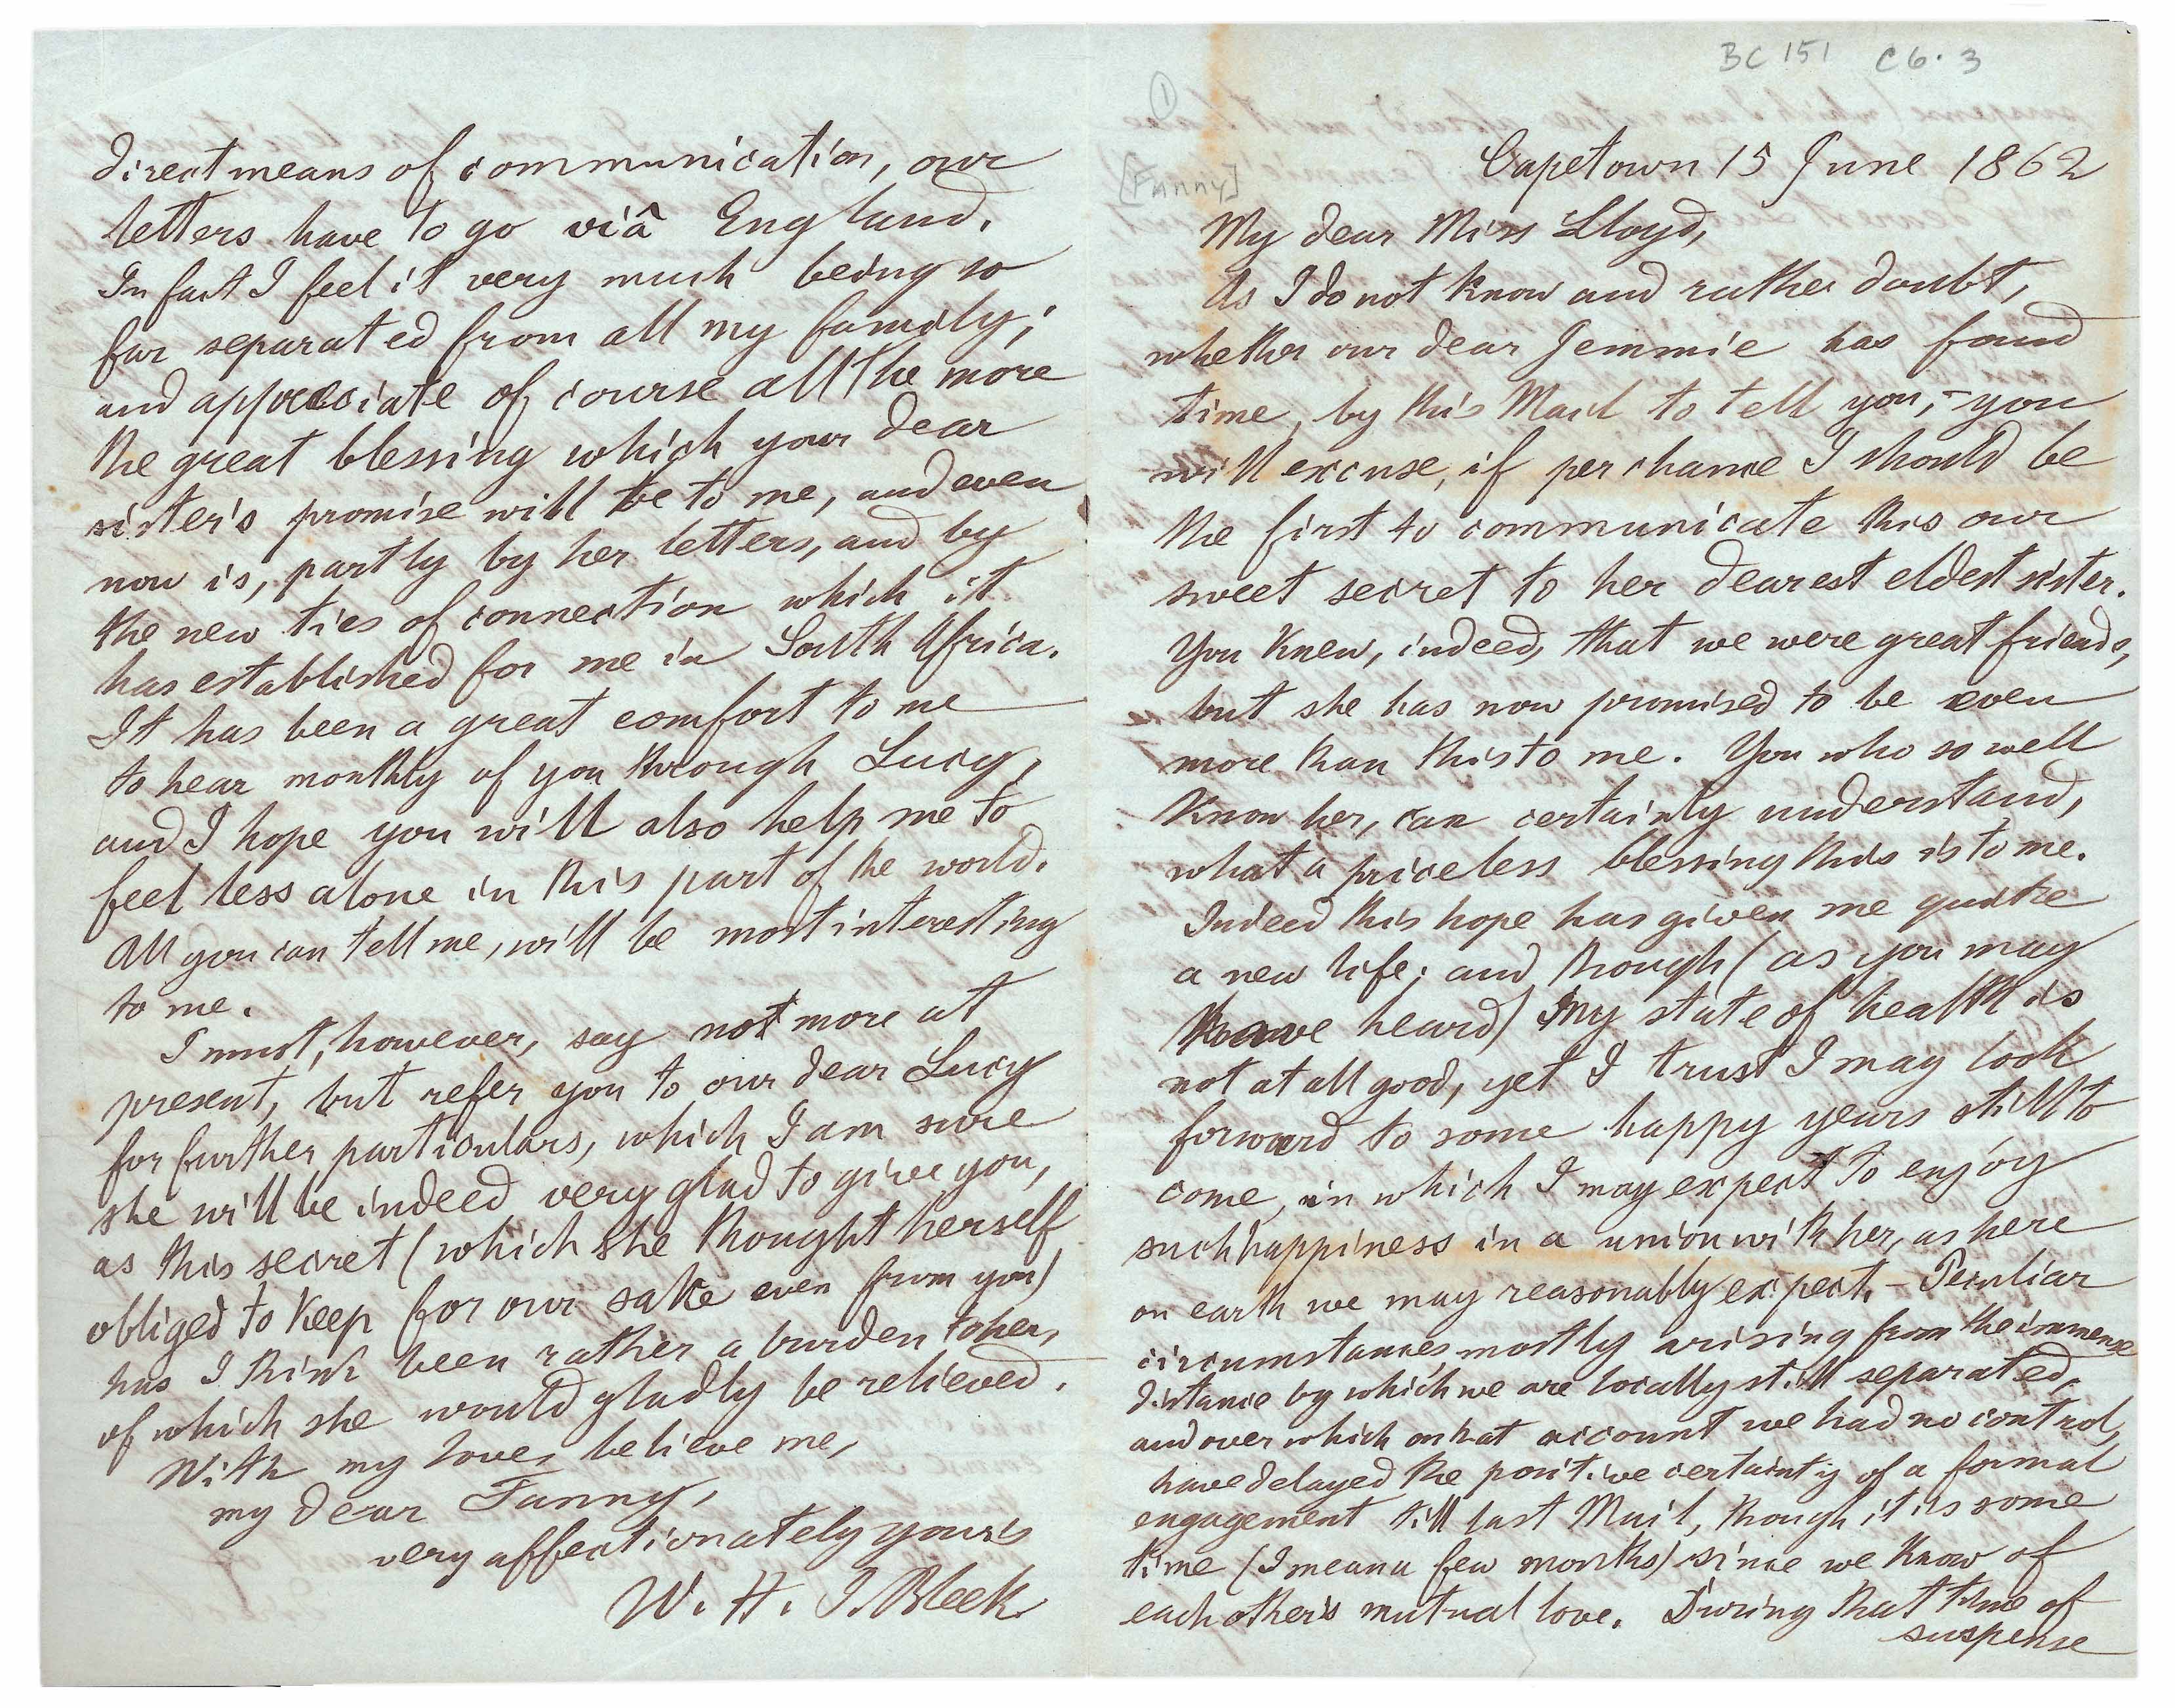 BC 151 C6.3
①
Capetown 15 June 1862
[Fanny]
My dear Miss Lloyd,
As I do not know and rather doubt,
whether our dear Jemmie has found
time, by this Mail to tell you, - you
will excuse, if perchance I should be
the first to communicate this our
sweet secret to her dearest eldest sister.
You knew, indeed, that we were great friends,
but she has now promised to be even
more than this to me. You who so well
know her, can certainly understand,
what a priceless blessing this is to me.
Indeed this hope has given me quite
a new life; and though (as you may
have heard) my state of health is
not at all good, yet I trust I may look
forward to some happy years still to
come, in which I may expect to enjoy
such happiness in a union with her, as here
on earth we may reasonably expect. - Peculiar
circumstances, mostly arising from the immense
distance by which we are locally still separated,
and over which on that account we had no control,
have delayed the positive certainty of a formal
engagement till last Mail, though it is some
time (I mean a few months) since we know of
each other's mutual love. During that time of
suspense
direct means of communication, our
letters have to go viâ England.
In fact I feel it very much being so
far separated from all my family;
and appreciate of course all the more
the great blessing which your dear
sister's promise will be to me, and even
now is, partly by her letters, and by
the new ties of connection which it
has established for me in South Africa.
It has been a great comfort to me
to hear monthly of you through Lucy,
and I hope you will also help me to
feel less alone in this part of the world.
All you can tell me, will be most interesting
to me.
I must, however, say not more at
present, but refer you to our dear Lucy
for further particulars, which I am sure
she will be indeed very glad to give you,
as this secret (which she thought herself
obliged to keep for our sake even from you)
has I think been rather a burden to her,
of which she would gladly be relieved.
With my love, believe me,
my dear Fanny,
very affectionately yours
W. H. I. Bleek